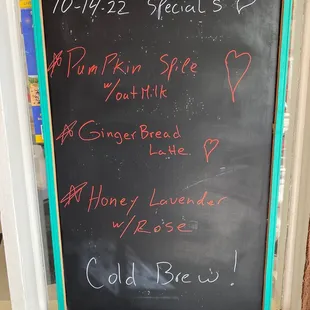 10-14-22 Specials
Pumpkin Spice
w/oat Milk
GingerBread
Latte
Honey Lavender
w/Rose
Cold Brew!